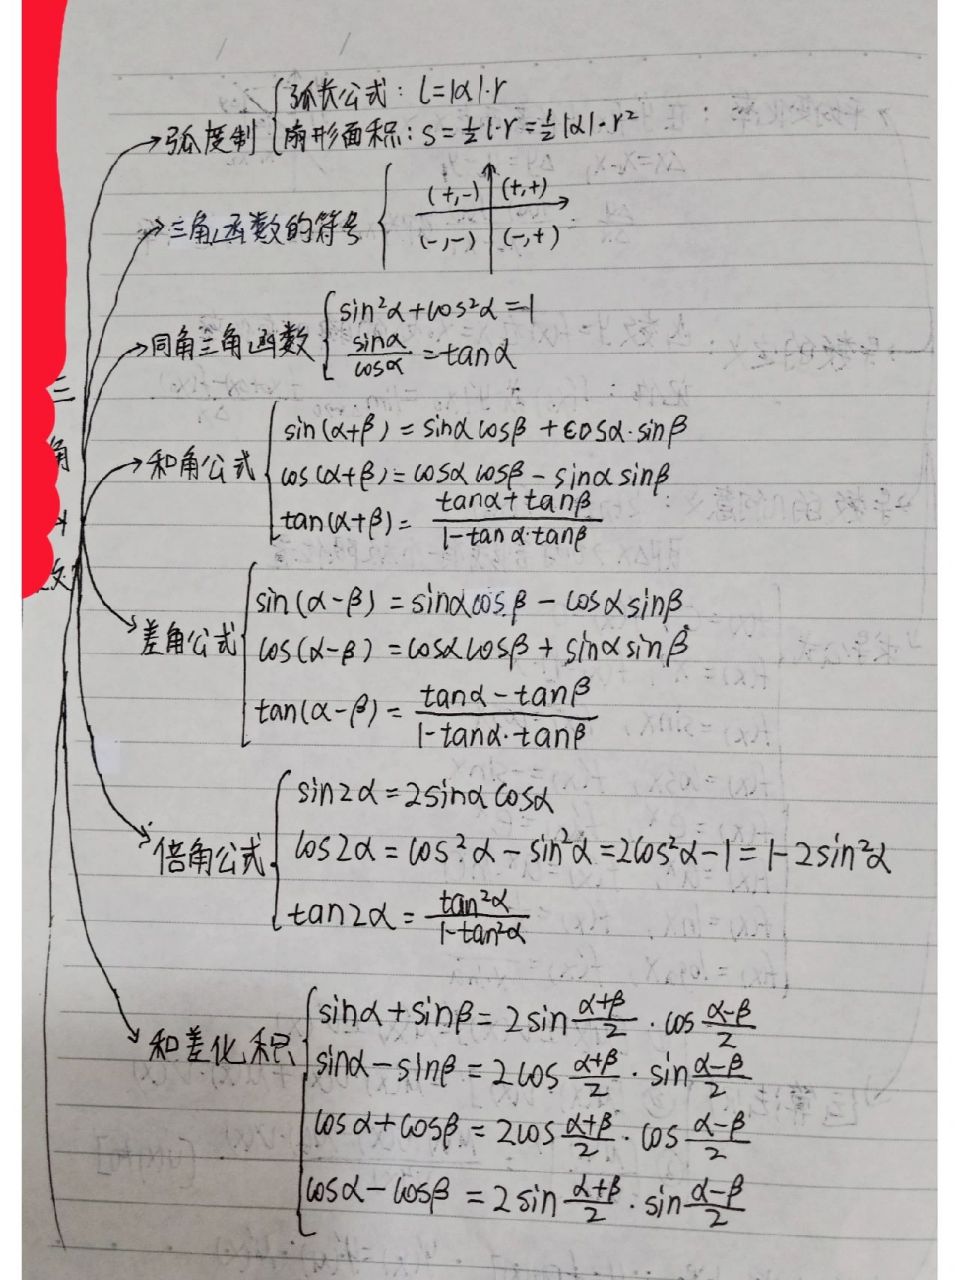 弧度制
弧长公式: l=|α|·r
扇形面积: S=½l·r=½|α|·r²
三角函数的符号
(+,-) (+,+)
(-,-) (-,+)
同角三角函数
sin²α+cos²α=1
sinα/cosα=tanα
三
角
和角公式
sin(α+β)=sinαcosβ+cosα·sinβ
cos(α+β)=cosαcosβ-sinαsinβ
tan(α+β)=(tanα+tanβ)/(1-tanα·tanβ)
差角公式
sin(α-β)=sinαcosβ-cosαsinβ
cos(α-β)=cosαcosβ+sinαsinβ
tan(α-β)=(tanα-tanβ)/(1-tanα·tanβ)
倍角公式
sin2α=2sinαcosα
cos2α=cos²α-sin²α=2cos²α-1=1-2sin²α
tan2α=tan²α/(1-tan²α)
和差化积
sinα+sinβ=2sin(α+β)/2·cos(α-β)/2
sinα-sinβ=2cos(α+β)/2·sin(α-β)/2
cosα+cosβ=2cos(α+β)/2·cos(α-β)/2
cosα-cosβ=2sin(α+β)/2·sin(α-β)/2